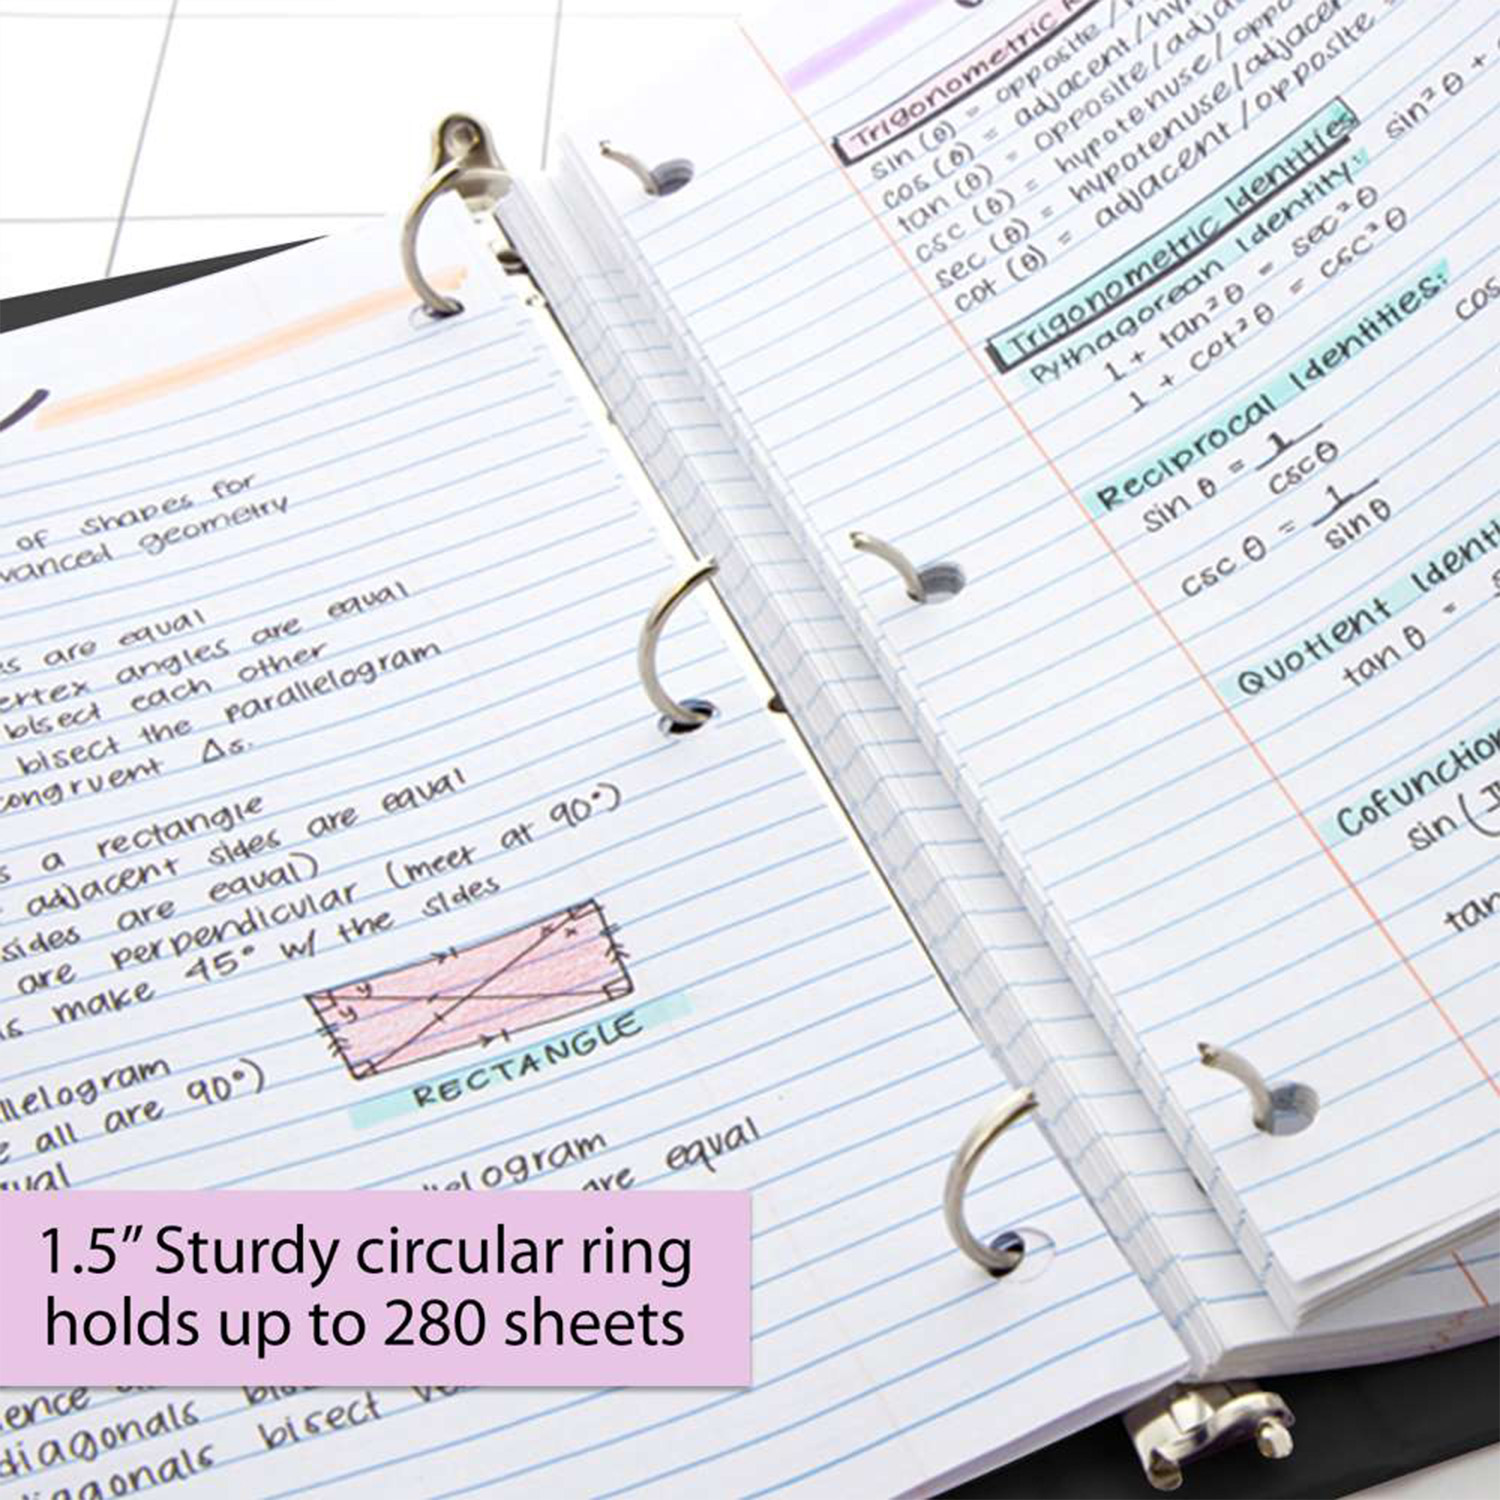 of shapes for
geometry
are equal
angles are equal
bisect each other
bisect the parallelogram
congruent Δs.
a rectangle
adjacent sides are equal
sides are equal)
are perpendicular (meet at 90°)
make 45° w/ the sides
y
y
x
x
RECTANGLE
all are 90°)
are equal
1.5” Sturdy circular ring
holds up to 280 sheets
diagonals
diagonals bisect
Trigonometric
sin (θ) = opposite /
cos (θ) = adjacent/hy
tan (θ) = opposite/adja
csc (θ) = hypotenuse/oppo
sec (θ) = hypotenuse/adjacen
cot (θ) = adjacent/opposite
Trigonometric Identities
Pythagorean Identity: sin²θ +
1 + tan²θ = sec²θ
1 + cot²θ = csc²θ
Reciprocal Identities:
sin θ = 1
cscθ
cos
csc θ = 1
sinθ
Quotient Identi
tan θ =
Cofunction
sin (
tan